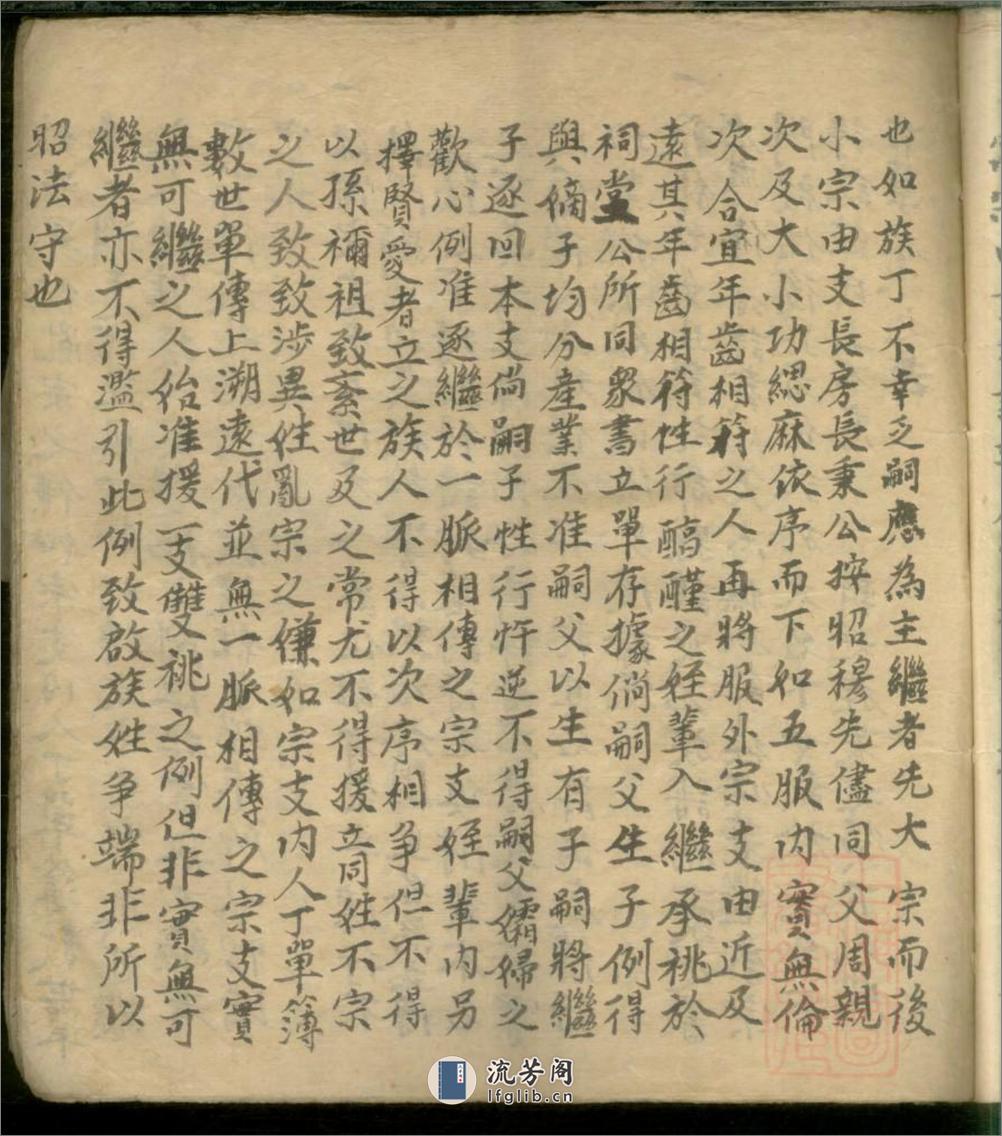 也如族丁不幸乏嗣應為主繼者先大宗而後
小宗由支長房長秉公按昭穆先儘同父周親
次及大小功緦麻依序而下如五服內實無倫
次合宜年齒相符之人再將服外宗支由近及
遠其年齒相符性行醕醒之姪輩入繼承祧於
祠堂公所同衆書立單存據倘嗣父生子例得
與嫡子均分產業不准嗣父以生有子嗣將繼
子逐回本支倘嗣子性行忤逆不得嗣父孀婦之
歡心例准逐繼於一脈相傳之宗支姪輩內另
擇賢愛者立之族人不得以次序相爭但不得
以孫禰祖致紊世及之常尤不得援立同姓不宗
之人致致涉異姓亂宗之嫌如宗支內人丁單簿
數世單傳上溯遠代並無一脈相傳之宗支實
無可繼之人始准援一支雙祧之例但非實無可
繼者亦不得濫引此例致啟族姓爭端非所以
昭法守也
流芳阁
lfglib.cn